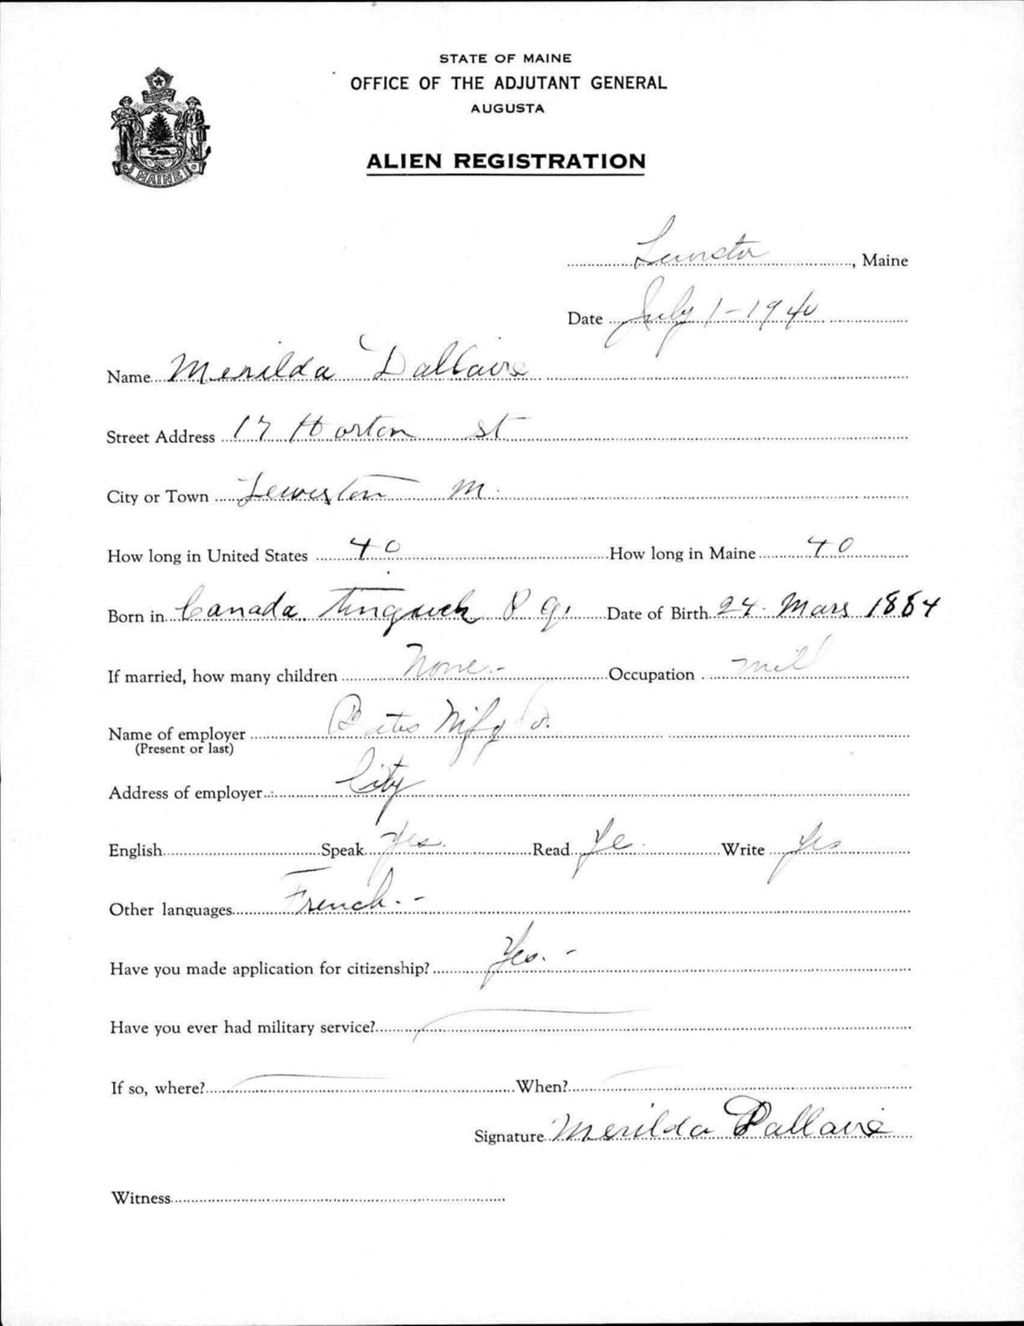 STATE OF MAINE
OFFICE OF THE ADJUTANT GENERAL
AUGUSTA
ALIEN REGISTRATION
MAINE
Lewisto, Maine
Date July 1-1940
Name Merilda Dallaire
Street Address 17 Horton St
City or Town Lewiston M.
How long in United States 40 How long in Maine 40
Born in Canada. Tingwick P.Q. Date of Birth 24. Mars 1884
If married, how many children None.- Occupation mill
Name of employer Bates Mfg Co.
(Present or last)
Address of employer City
English Speak Yes. Read Ye. Write Yes
Other languages French.-
Have you made application for citizenship? Yes.-
Have you ever had military service?
If so, where? When?
Signature Merilda Dallaire
Witness